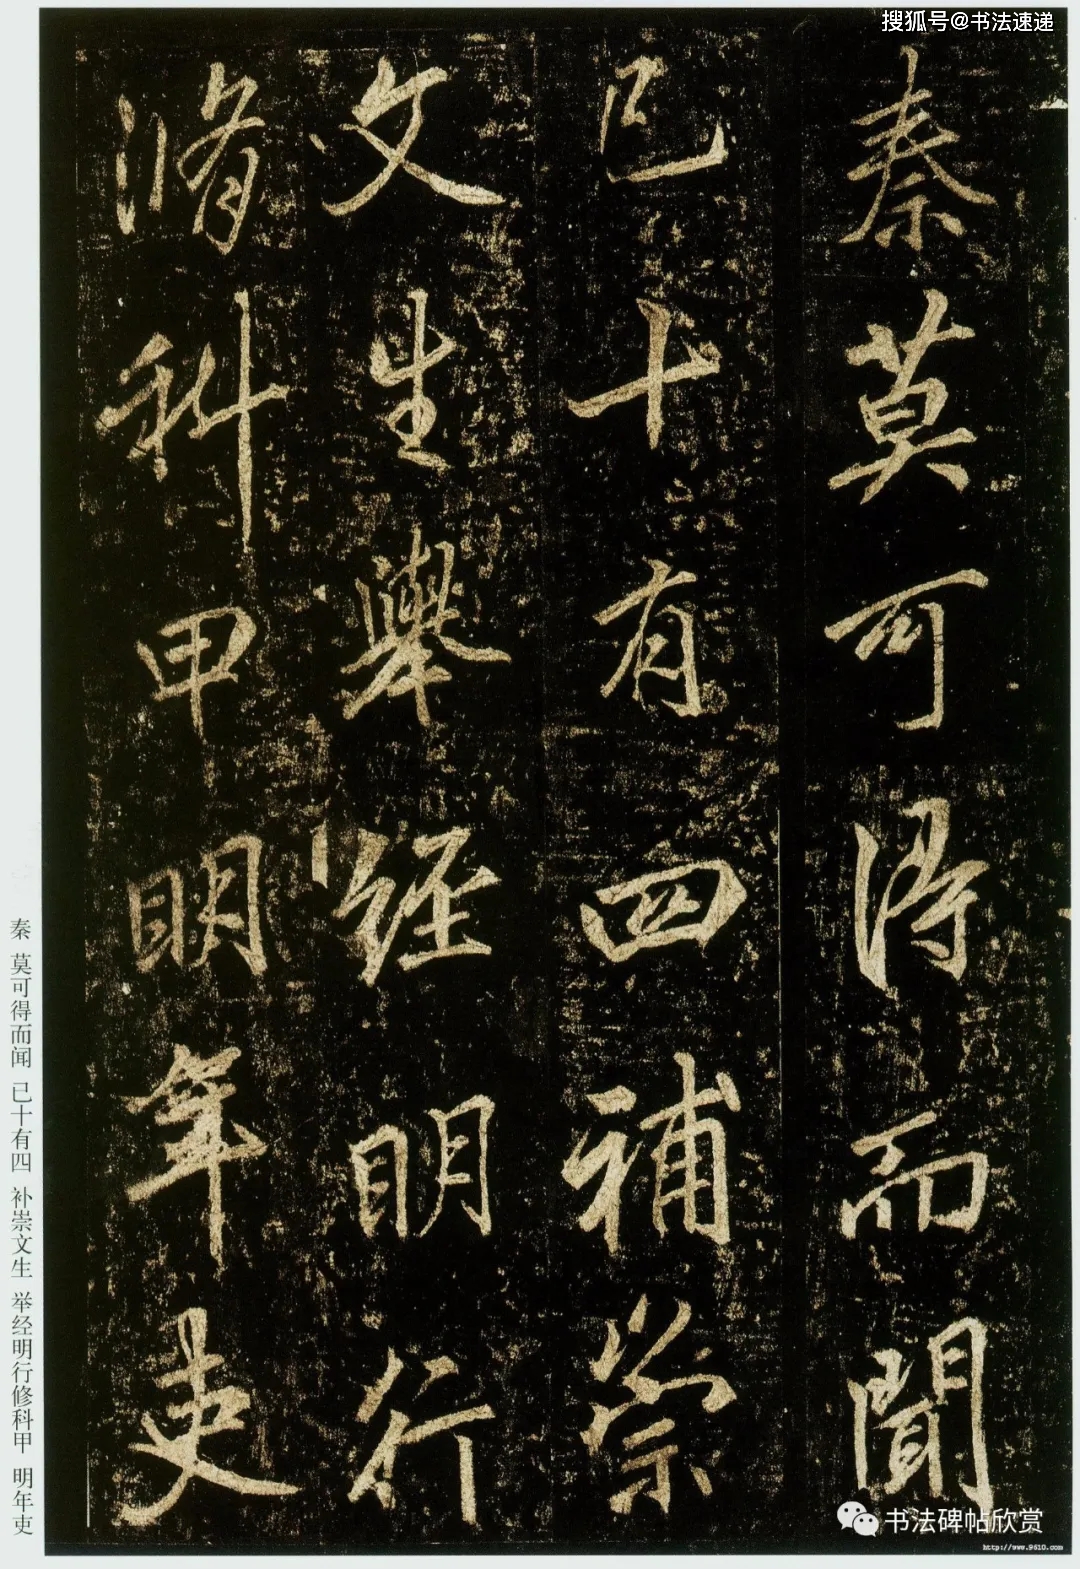 搜狐号@书法速递
秦莫可得而聞
已十有四補崇
文生舉經明行
脩科甲明年吏
秦 莫可得而闻 已十有四 补崇文生 举经明行修科甲 明年吏
书法碑帖欣赏
http://www.9610.com